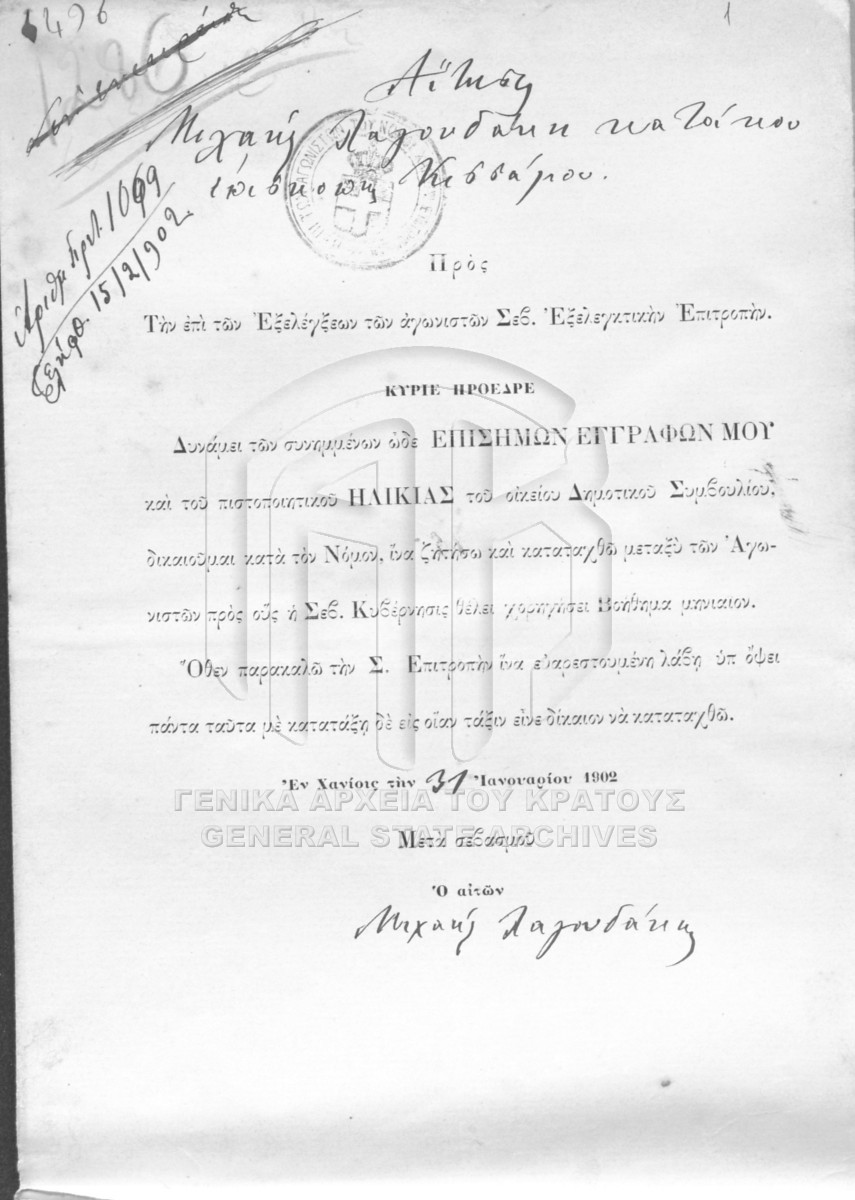 496
1
1286
Αἴτησις
Μιχαήλ Λαγουδάκη κατοίκου
ἐπισκοπῆς Κισσάμου.
Ἀριθμ Πρωτ. 1069
Ἐλήφθ. 15/2/902
Πρὸς
Τὴν ἐπὶ τῶν Ἐξελέγξεων τῶν ἀγωνιστῶν Σεβ. Ἐξελεγκτικὴν Ἐπιτροπήν.
ΚΥΡΙΕ ΠΡΟΕΔΡΕ
Δυνάμει τῶν συνημμένων ὧδε ΕΠΙΣΗΜΩΝ ΕΓΓΡΑΦΩΝ ΜΟΥ
καὶ τοῦ πιστοποιητικοῦ ΗΛΙΚΙΑΣ τοῦ οἰκείου Δημοτικοῦ Συμβουλίου,
δικαιοῦμαι κατὰ τὸν Νόμον, ἵνα ζητήσω καὶ καταταχθῶ μεταξὺ τῶν Ἀγω-
νιστῶν πρὸς οὓς ἡ Σεβ. Κυβέρνησις θέλει χορηγήσει Βοήθημα μηνιαῖον.
Ὅθεν παρακαλῶ τὴν Σ. Ἐπιτροπὴν ἵνα εὐαρεστουμένη λάβῃ ὑπ ὄψει
πάντα ταῦτα μὲ κατατάξῃ δὲ εἰς οἵαν τάξιν εἶνε δίκαιον νὰ καταταχθῶ.
Ἐν Χανίοις τὴν 31 Ἰανουαρίου 1902
ΓΕΝΙΚΑ ΑΡΧΕΙΑ ΤΟΥ ΚΡΑΤΟΥΣ
GENERAL STATE ARCHIVES
Μετὰ σεβασμοῦ
Ὁ αἰτῶν
Μιχαήλ Λαγουδάκης